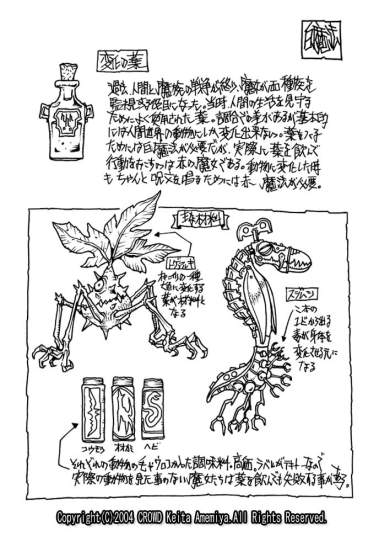 変化の薬
白魔法
過去、人間と魔族の戦争が終り、魔女が両種族を
監視する役目になった。当時、人間の生活を見守る
ためによく使用された薬。調合で差はあるが基本的
には人間世界の動物にしか変化出来ない。薬をつくる
ためには白魔法が必要だが、実際に薬を飲んで
行動をおこすのは赤の魔女である。動物に変化した時
もちゃんと呪文を唱えるためには赤い魔法が必要。
主な材料
一種
変化する
葉が材料と
なる
この
毒が身体を
変化させる元に
なる
コウモリ
オオカミ
ヘビ
それぞれの動物の毛やウロコが入った調味料。高価。ラベルがテキトーなので
実際の動物を見た事のない魔女たちは薬を飲んでも失敗する事が多い。
Copyright(C)2004 CROWD Keita Amemiya.All Rights Reserved.